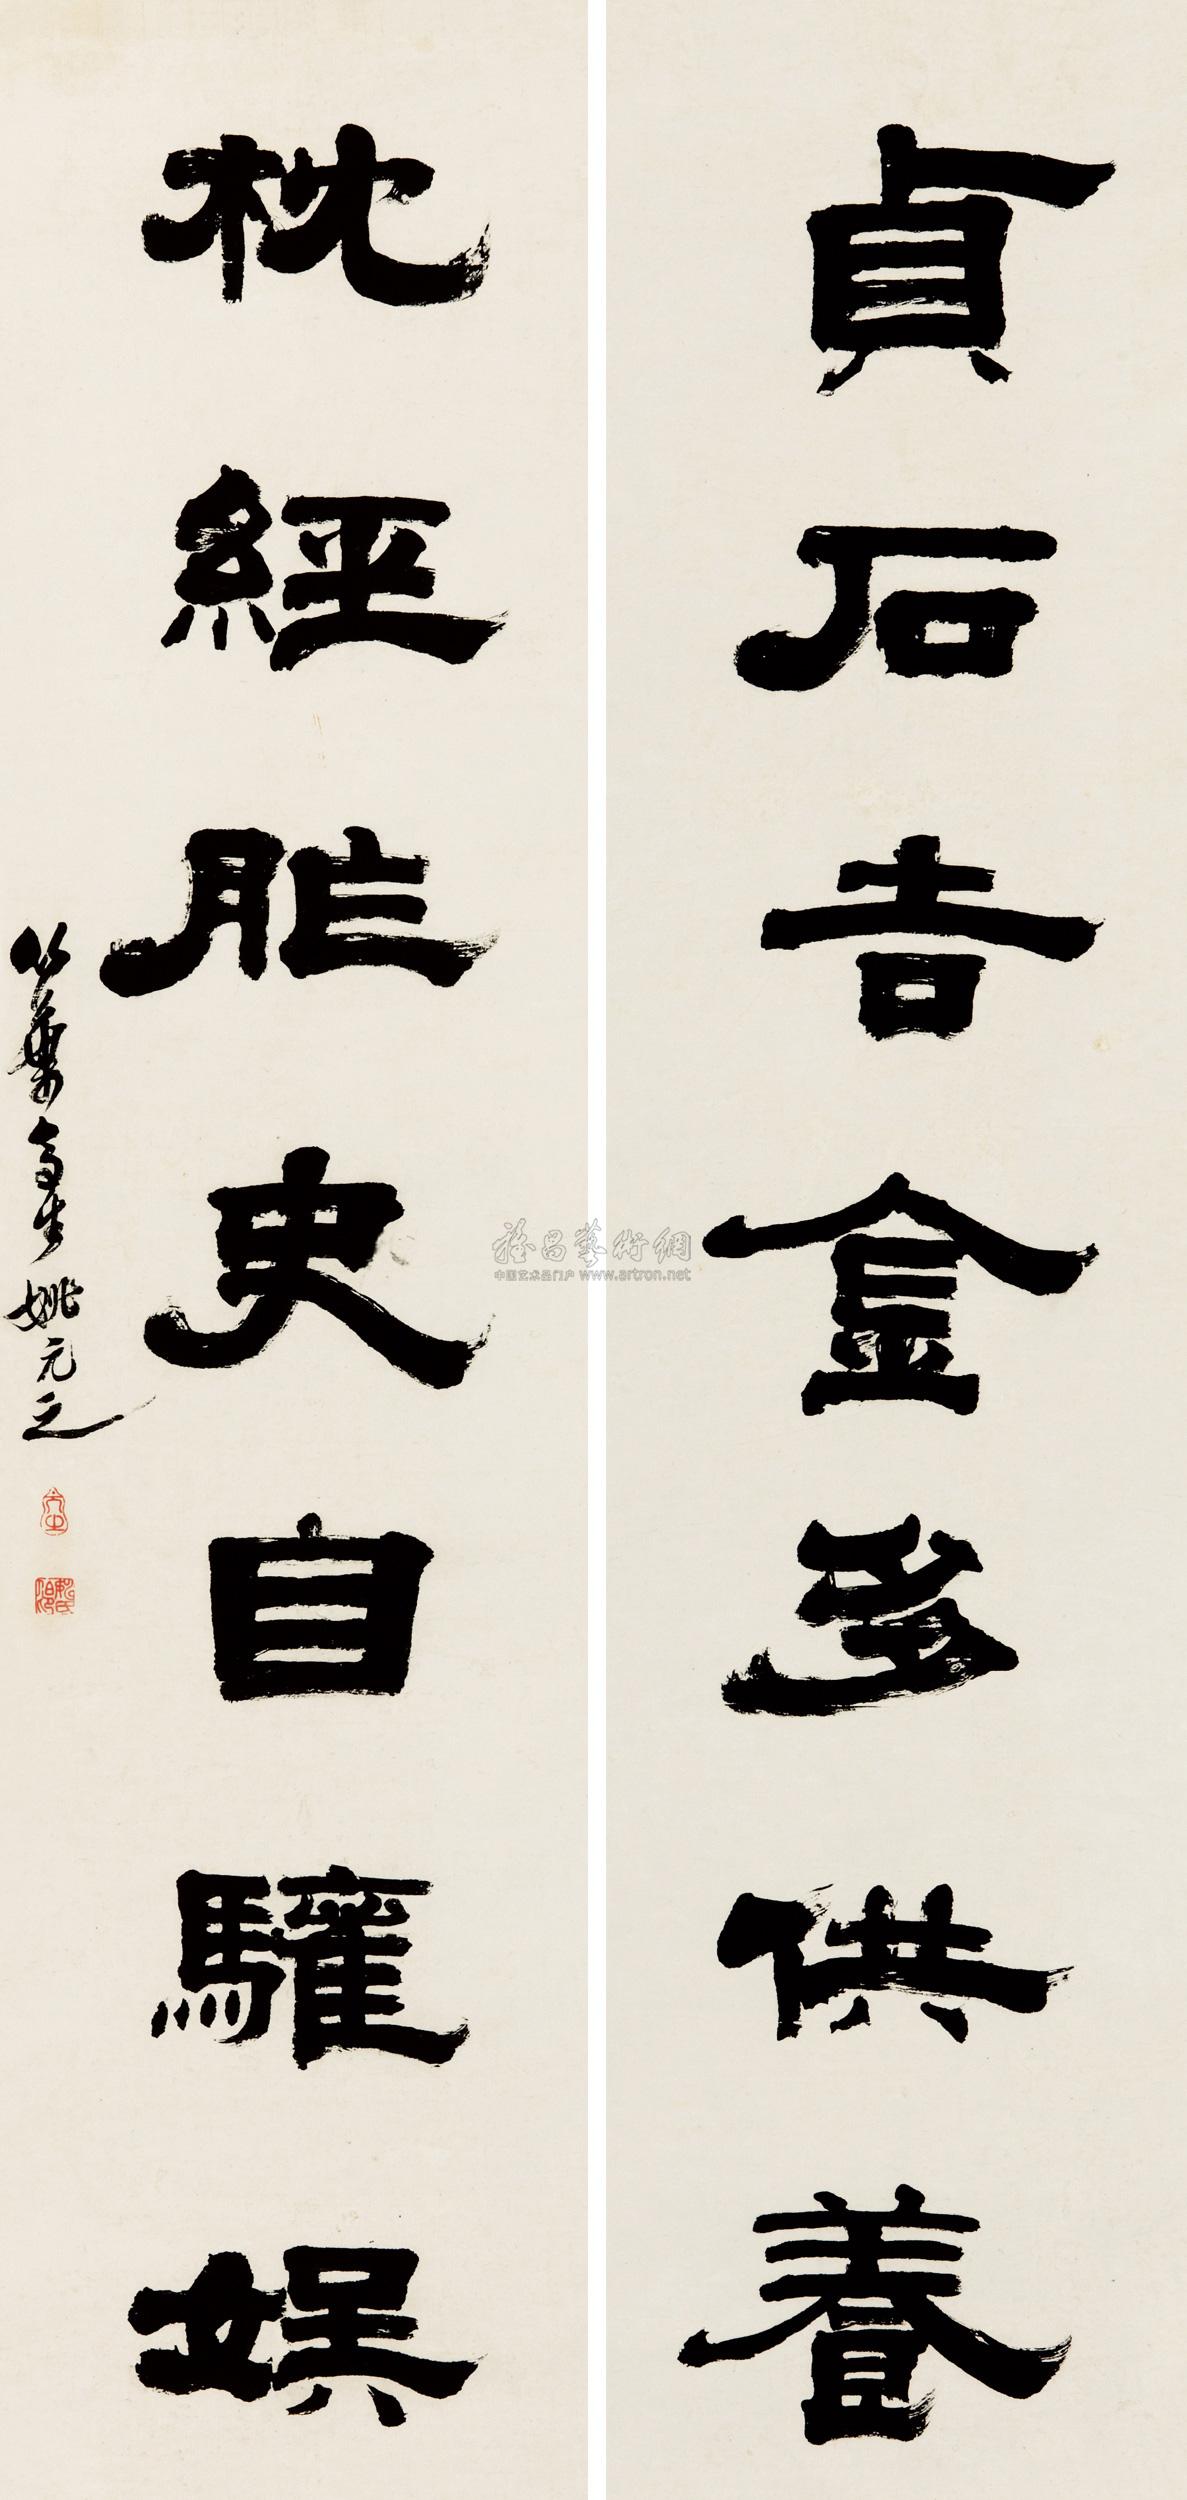 貞石吉金多供養
枕經胙史自驩娛
竹葉亭生姚元之
雅昌藝術網
中国艺术品门户 www.artron.net
元之